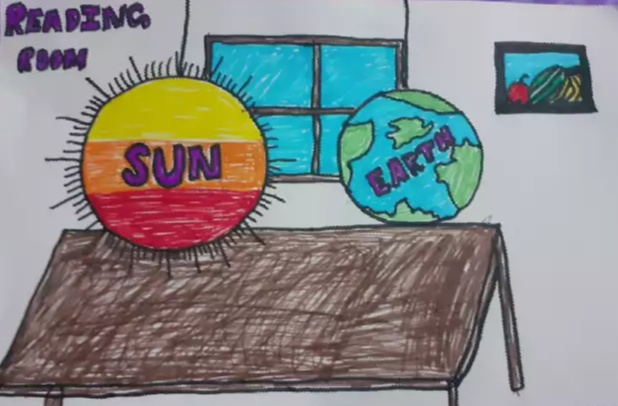 READING
ROOM
SUN
EARTH